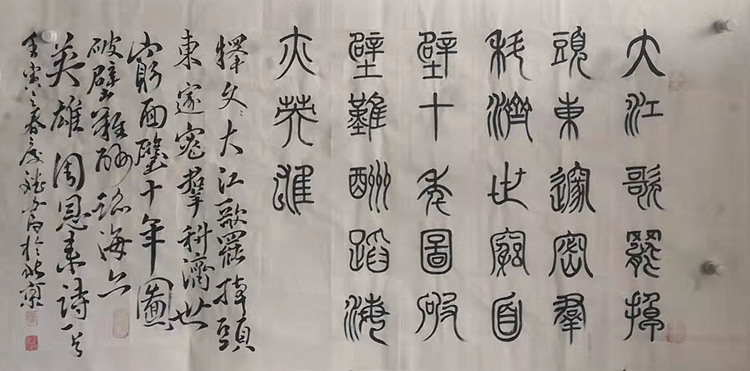 大江歌罷掉
頭東邃密羣
科濟世窮面
壁十年圖破
壁難酬蹈海
亦英雄
釋文：大江歌罷掉頭
東邃密羣科濟世
窮面壁十年圖
破壁難酬蹈海亦
英雄周恩來詩一首
壬寅之春於北京